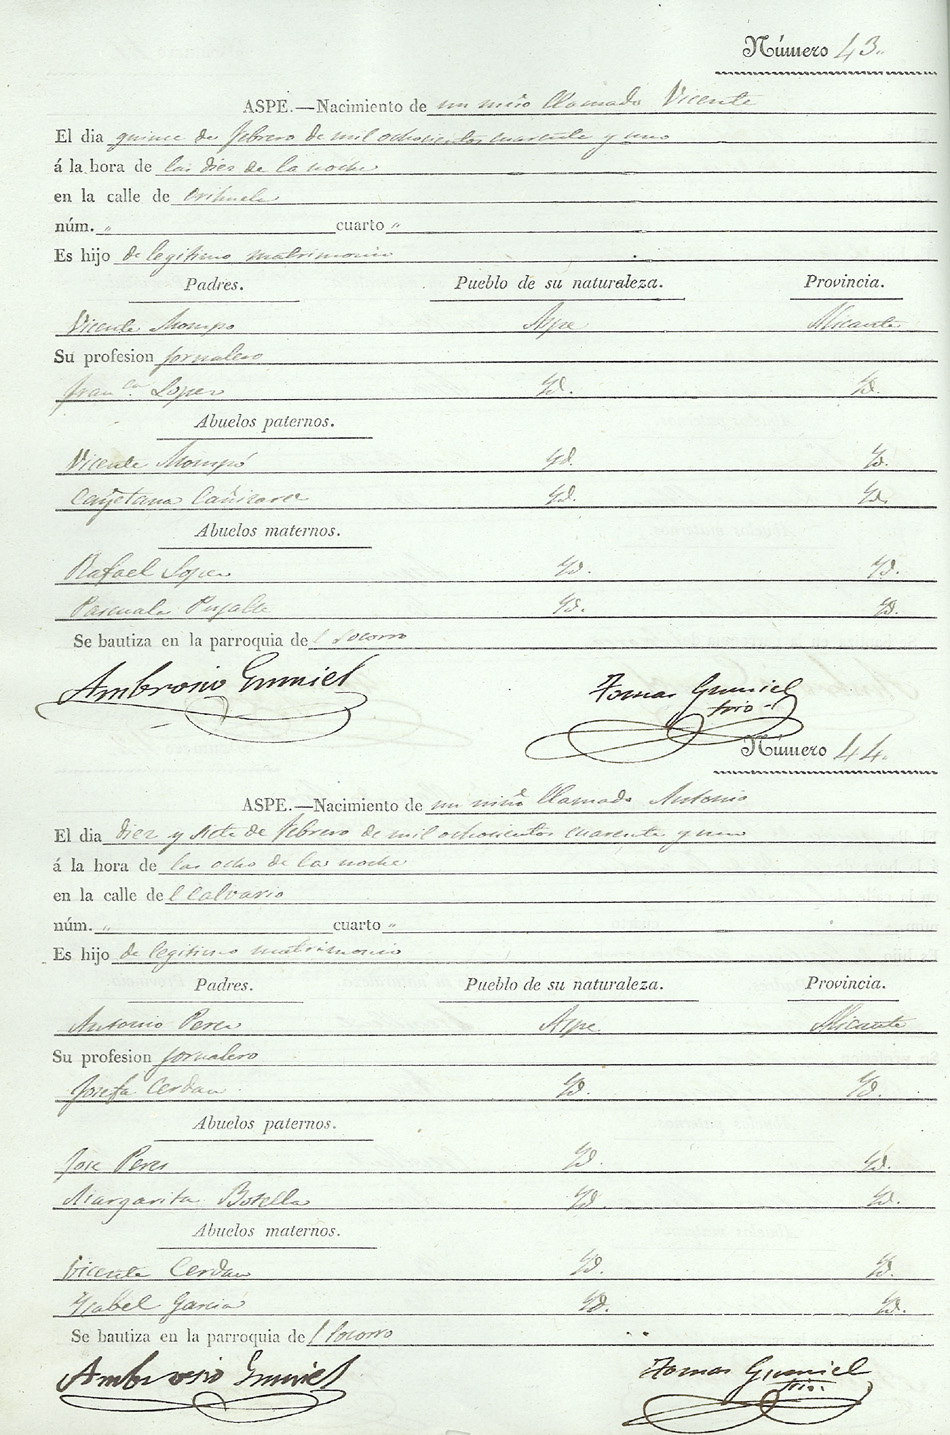 Número 43.
ASPE.—Nacimiento de un niño llamado Vicente
El dia quince de febrero de mil ochocientos cuarenta y uno
á la hora de las diez de la noche
en la calle de orihuela
núm. " cuarto "
Es hijo de legitimo matrimonio
Padres. Pueblo de su naturaleza. Provincia.
Vicente Mompo Aspe Alicante
Su profesion jornalero
Fran.ca Lopez Yd. Yd.
Abuelos paternos.
Vicente Mompó Yd. Yd.
Cayetana Cañizares Yd. Yd.
Abuelos maternos.
Rafael Lopez Yd. Yd.
Pascuala Pujalte Yd. Yd.
Se bautiza en la parroquia del Socorro
Ambrosio Gumiel Tomas Gumiel
srio
Número 44.
ASPE.—Nacimiento de un niño llamado Antonio
El dia diez y siete de febrero de mil ochocientos cuarenta y uno
á la hora de las ocho de la noche
en la calle del Calvario
núm. " cuarto "
Es hijo de legitimo matrimonio
Padres. Pueblo de su naturaleza. Provincia.
Antonio Perez Aspe Alicante
Su profesion jornalero
Josefa Cerdan Yd. Yd.
Abuelos paternos.
Jose Perez Yd. Yd.
Margarita Botella Yd. Yd.
Abuelos maternos.
Vicente Cerdan Yd. Yd.
Ysabel Garcia Yd. Yd.
Se bautiza en la parroquia del Socorro
Ambrosio Gumiel Tomas Gumiel
srio.